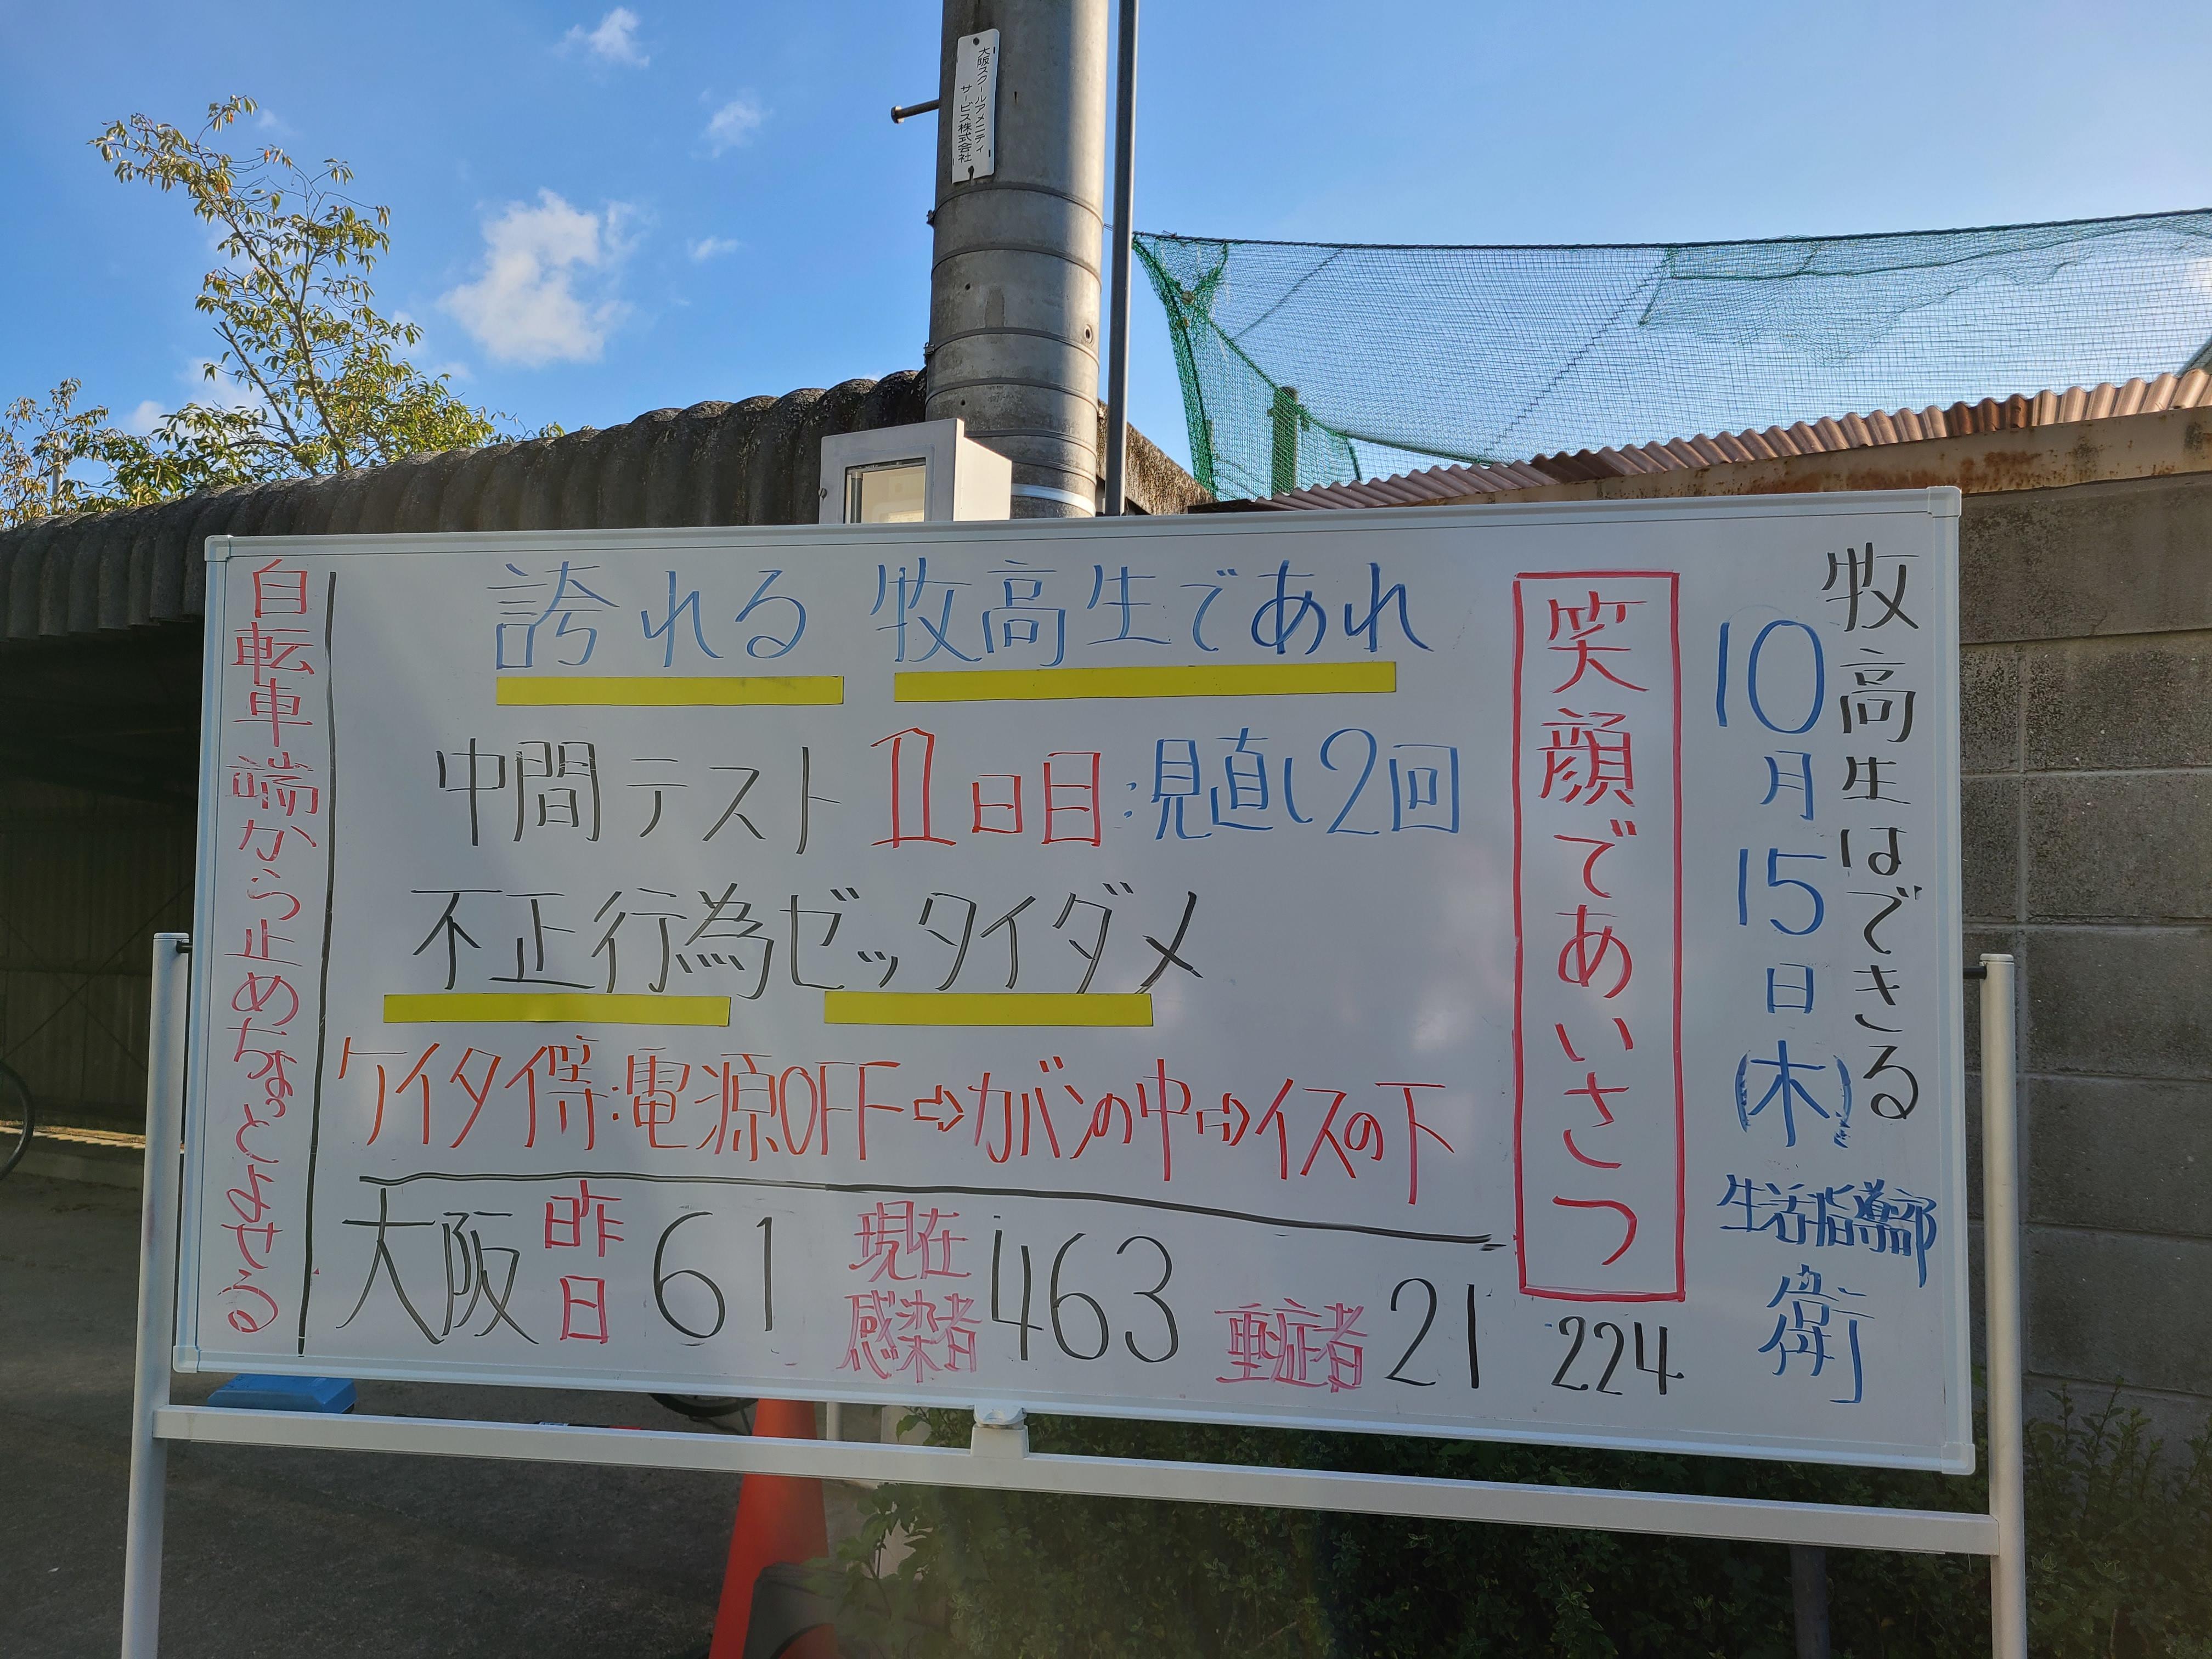 大阪スクールアメニティ
サービス株式会社
牧高生はできる
10月15日(木)
生活指導部
衛
笑顔であいさつ
224
誇れる 牧高生であれ
中間テスト 1日目:見直し2回
不正行為ゼッタイダメ
ケイタイ等:電源OFF⇨カバンの中⇨イスの下
大阪 昨日 61 現在感染者 463 重症者 21
自転車 端から止めちょっとよせる